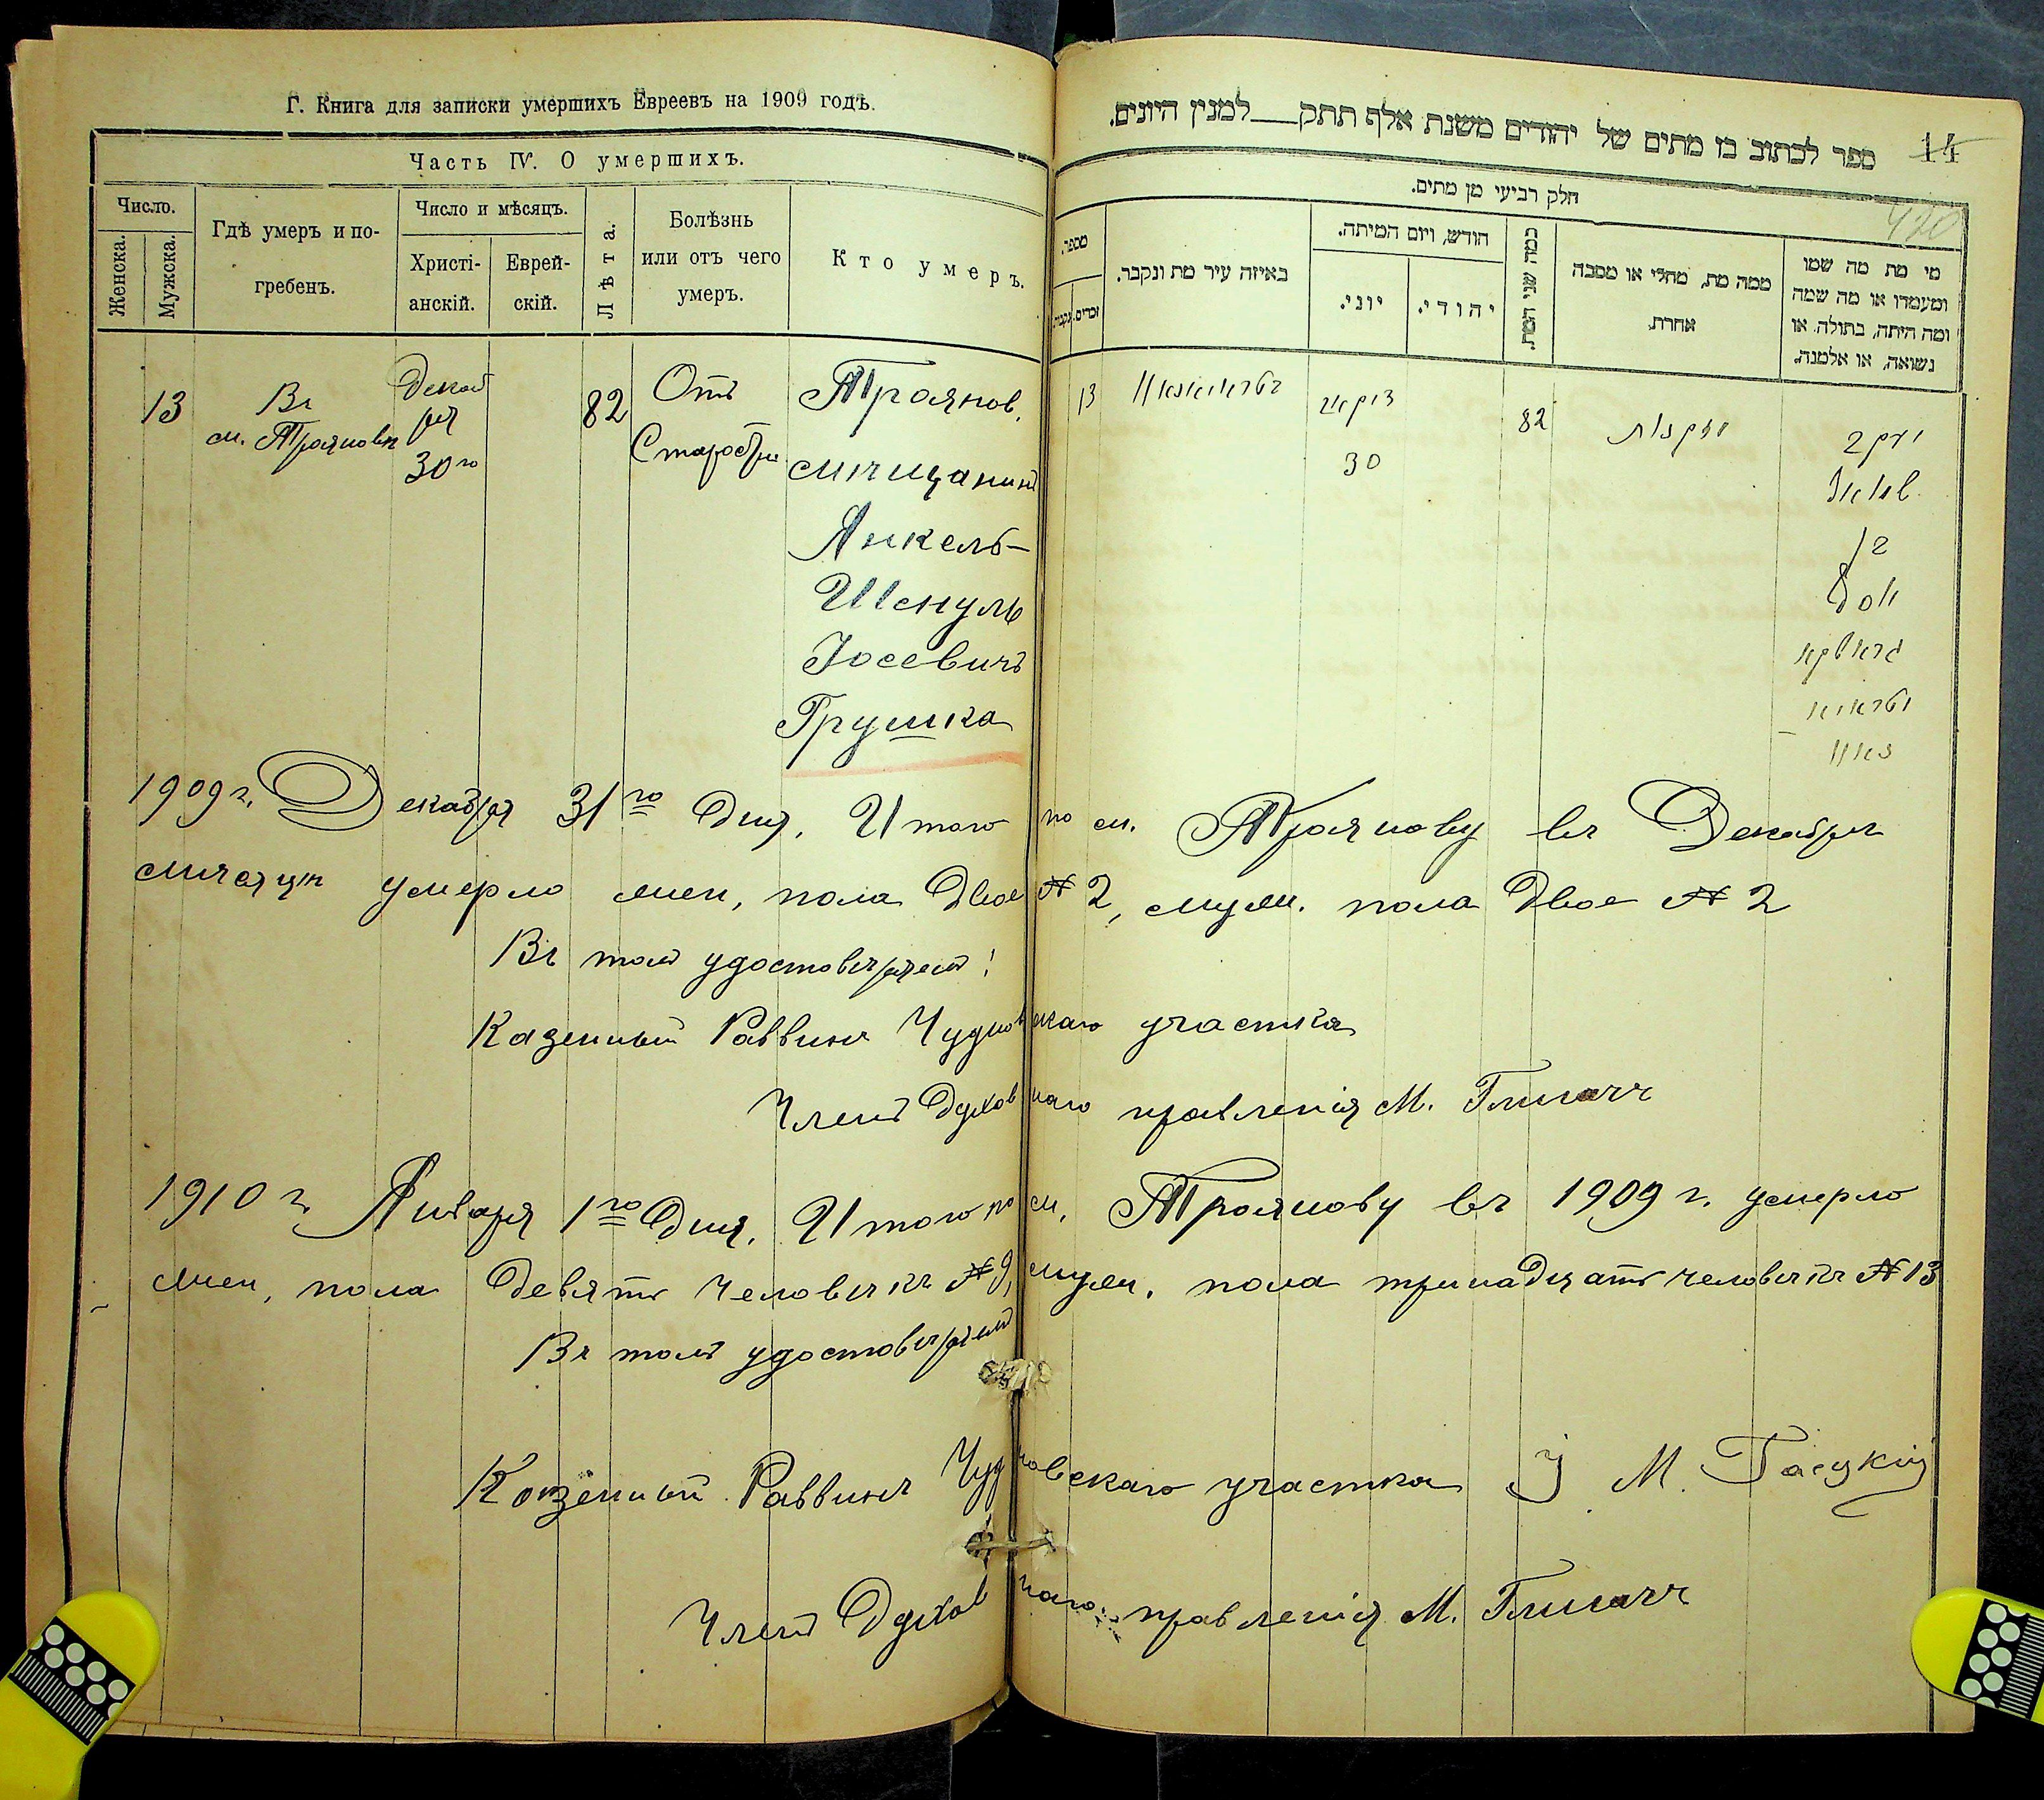 Г. Книга для записки умершихъ Евреевъ на 1909 годъ.
Часть IV. О умершихъ.
Число.
Женска.
Мужска.
Гдѣ умеръ и по-
гребенъ.
Число и мѣсяцъ.
Христі-
анскій.
Еврей-
скій.
Лѣта.
Болѣзнь
или отъ чего
умеръ.
Кто умеръ.
13
Въ
м. Трояновѣ
Декаб
ря
30го
82
Отъ
Троянов.
мѣщанинъ
Янкель-
Шмуль
Іосевичъ
Грушка
14
ספר לכתוב בו מתים של יהודים משנת אלף תתק___למנין היונים.
חלק רביעי מן מתים.
420
מספר.
זכרים.
נקבה.
באיזה עיר מת ונקבר.
חודש, ויום המיתה.
יוני.
יהודי.
כמה שני המת.
ממה מת, מחלי או מסבה
אחרת.
מי מת מה שמו
ומעמדו או מה שמה
ומה היתה, בתולה, או
נשואה, או אלמנה.
13
30
82
מזקנות
יעקב
שמואל
בן
יוסף
גרושקא
1909 г. Декабря 31го дня. Итого по м. Троянову въ Декабрѣ
мѣсяцѣ умерло жен, пола двое № 2, муж. пола двое № 2
Въ томъ удостовѣряемъ!
Казенный Раввинъ Чудновскаго участка
Членъ Духовнаго правленія М.
1910 г. Января 1го дня. Итого по м. Троянову въ 1909 г. умерло
жен, пола девять человѣкъ № 9, муж. пола тринадцать человѣкъ № 13
Въ томъ удостовѣряемъ
Казенный Раввинъ Чудновскаго участка М.
Членъ Духовнаго правленія М.